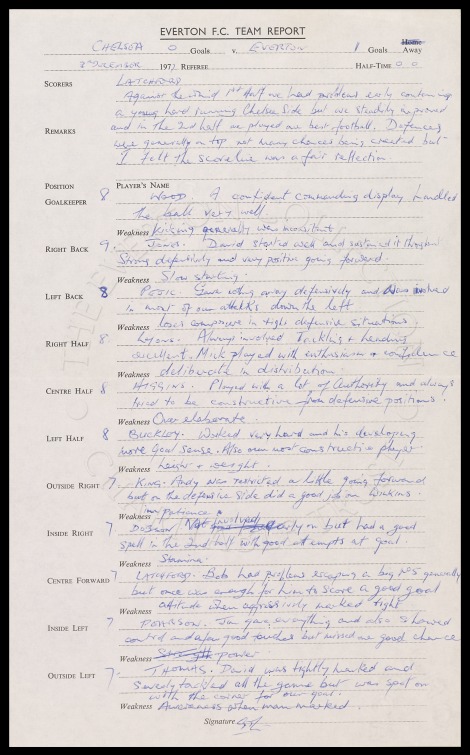 EVERTON F.C. TEAM REPORT
CHELSEA 0 Goals v. EVERTON 1 Goals Home Away
DECEMBER 197 REFEREE HALF-TIME 0 0
SCORERS LATCHFORD
Against the wind 1st Half we had problems early containing
a young hard running Chelsea side but we steadily improved
REMARKS and in the 2nd half we played our best football. Defences
were generally on top not many chances being created but
I felt the scoreline was a fair reflection
POSITION PLAYER'S NAME
GOALKEEPER 8 WOOD A confident commanding display handled
the ball very well
Weakness Kicking generally was inconsistent
RIGHT BACK 9. Jones. David started well and sustained it throughout
Strong defensively and very positive going forward.
Weakness Slow starting.
LEFT BACK 8 PEJIC Gave nothing away defensively and was involved
in most of our attacks down the left
Weakness loses composure in tight defensive situations
RIGHT HALF 8 Lyons. Always involved Tackling & heading
excellent. Mick played with enthusiasm & confidence
Weakness deliberate in distribution.
CENTRE HALF 8 HIGGINS. Played with a lot of authority and always
tried to be constructive from defensive positions.
Weakness Over elaborate
LEFT HALF 8 BUCKLEY. Worked very hard and his developing
more Goal sense. Also our most constructive player.
Weakness height & weight.
OUTSIDE RIGHT 7. KING. Andy was restricted a little going forward
but on the defensive side did a good job on Wilkins.
Weakness impatience
INSIDE RIGHT 7 DOBSON Not involved early on but had a good
spell in the 2nd half with good attempts at goal.
Weakness Stamina
CENTRE FORWARD 7 LATCHFORD. Bob had problems escaping a big No 5 generally
but once was enough for him to score a good goal
Weakness attitude when aggressively marked tight
INSIDE LEFT 7 PEARSON. Jim gave everything and also showed
control and a few good touches but missed one good chance
Weakness Strength power
OUTSIDE LEFT 7. THOMAS. David was tightly marked and
severely tackled all the game but was spot on
with the corner for our goal.
Weakness Awareness when man marked.
Signature